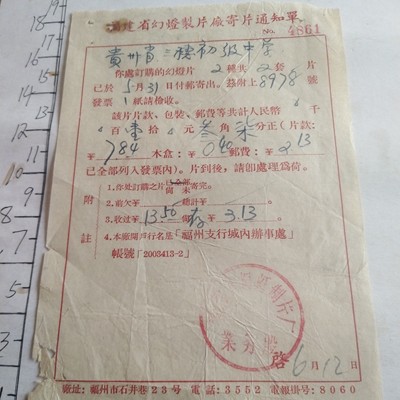 福建省幻燈製片廠寄片通知單
No. 4861
貴州省三穗初級中學
你處訂購的幻燈片 2種共2套 片
已於5月31日付郵寄出。茲附上8978號
發票1紙請檢收。
該片片款、包裝、郵費等共計人民幣 仟
佰壹拾 元叁角柒分正(片款:
¥784 木盒:¥040 郵費:¥213
已全部列入發票內)。片到後,請卽處理爲荷。
附註
1.你處訂購之片已全部尚未寄完。
2.前欠¥ 總計¥ 。
3.收过¥13.50 存¥3.13。
4.本廠開戶行名是「福州支行城內辦事處」
帳號「2003413-2」
製片厂
業務
啓 6月12日
廠址:福州市石井巷23号 電話:3552 電報掛号:8060